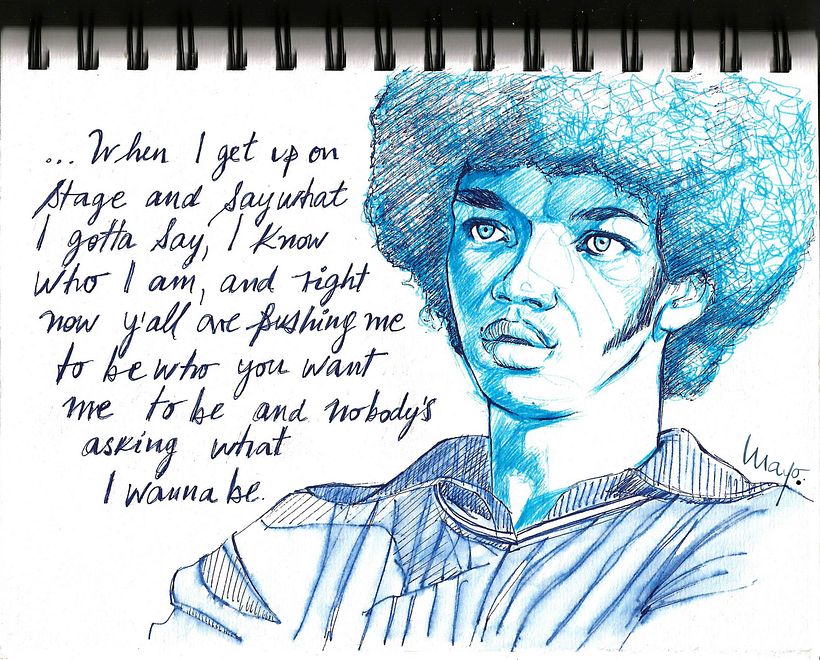 ... When I get up on
stage and say what
I gotta say, I know
who I am, and right
now y'all are pushing me
to be who you want
me to be and nobody's
asking what
I wanna be.
Mayo.